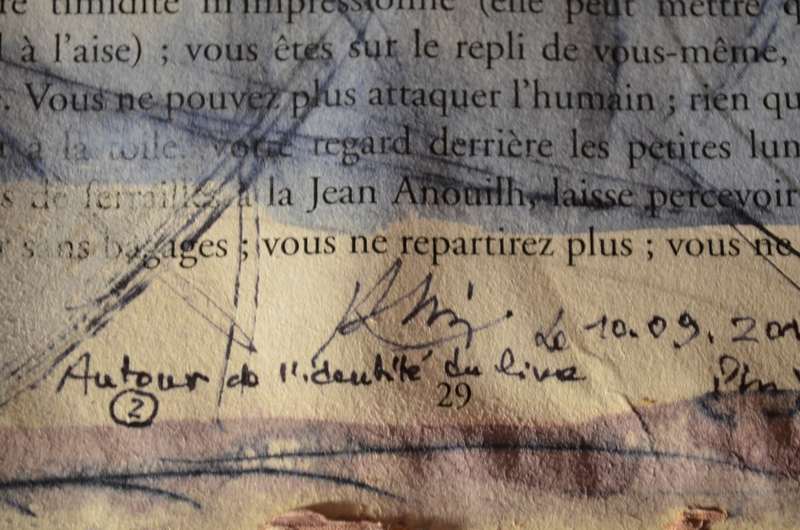 timidité m'impressionne (elle peut mettre
à l'aise) ; vous êtes sur le repli de vous-même,
. Vous ne pouvez plus attaquer l'humain ; rien qu
à la toile. Votre regard derrière les petites lun
s de ferrailles à la Jean Anouilh, laisse percevoir
sans bagages ; vous ne repartirez plus ; vous ne
Le 10.09.201
Autour de l'identité du livre
2
29